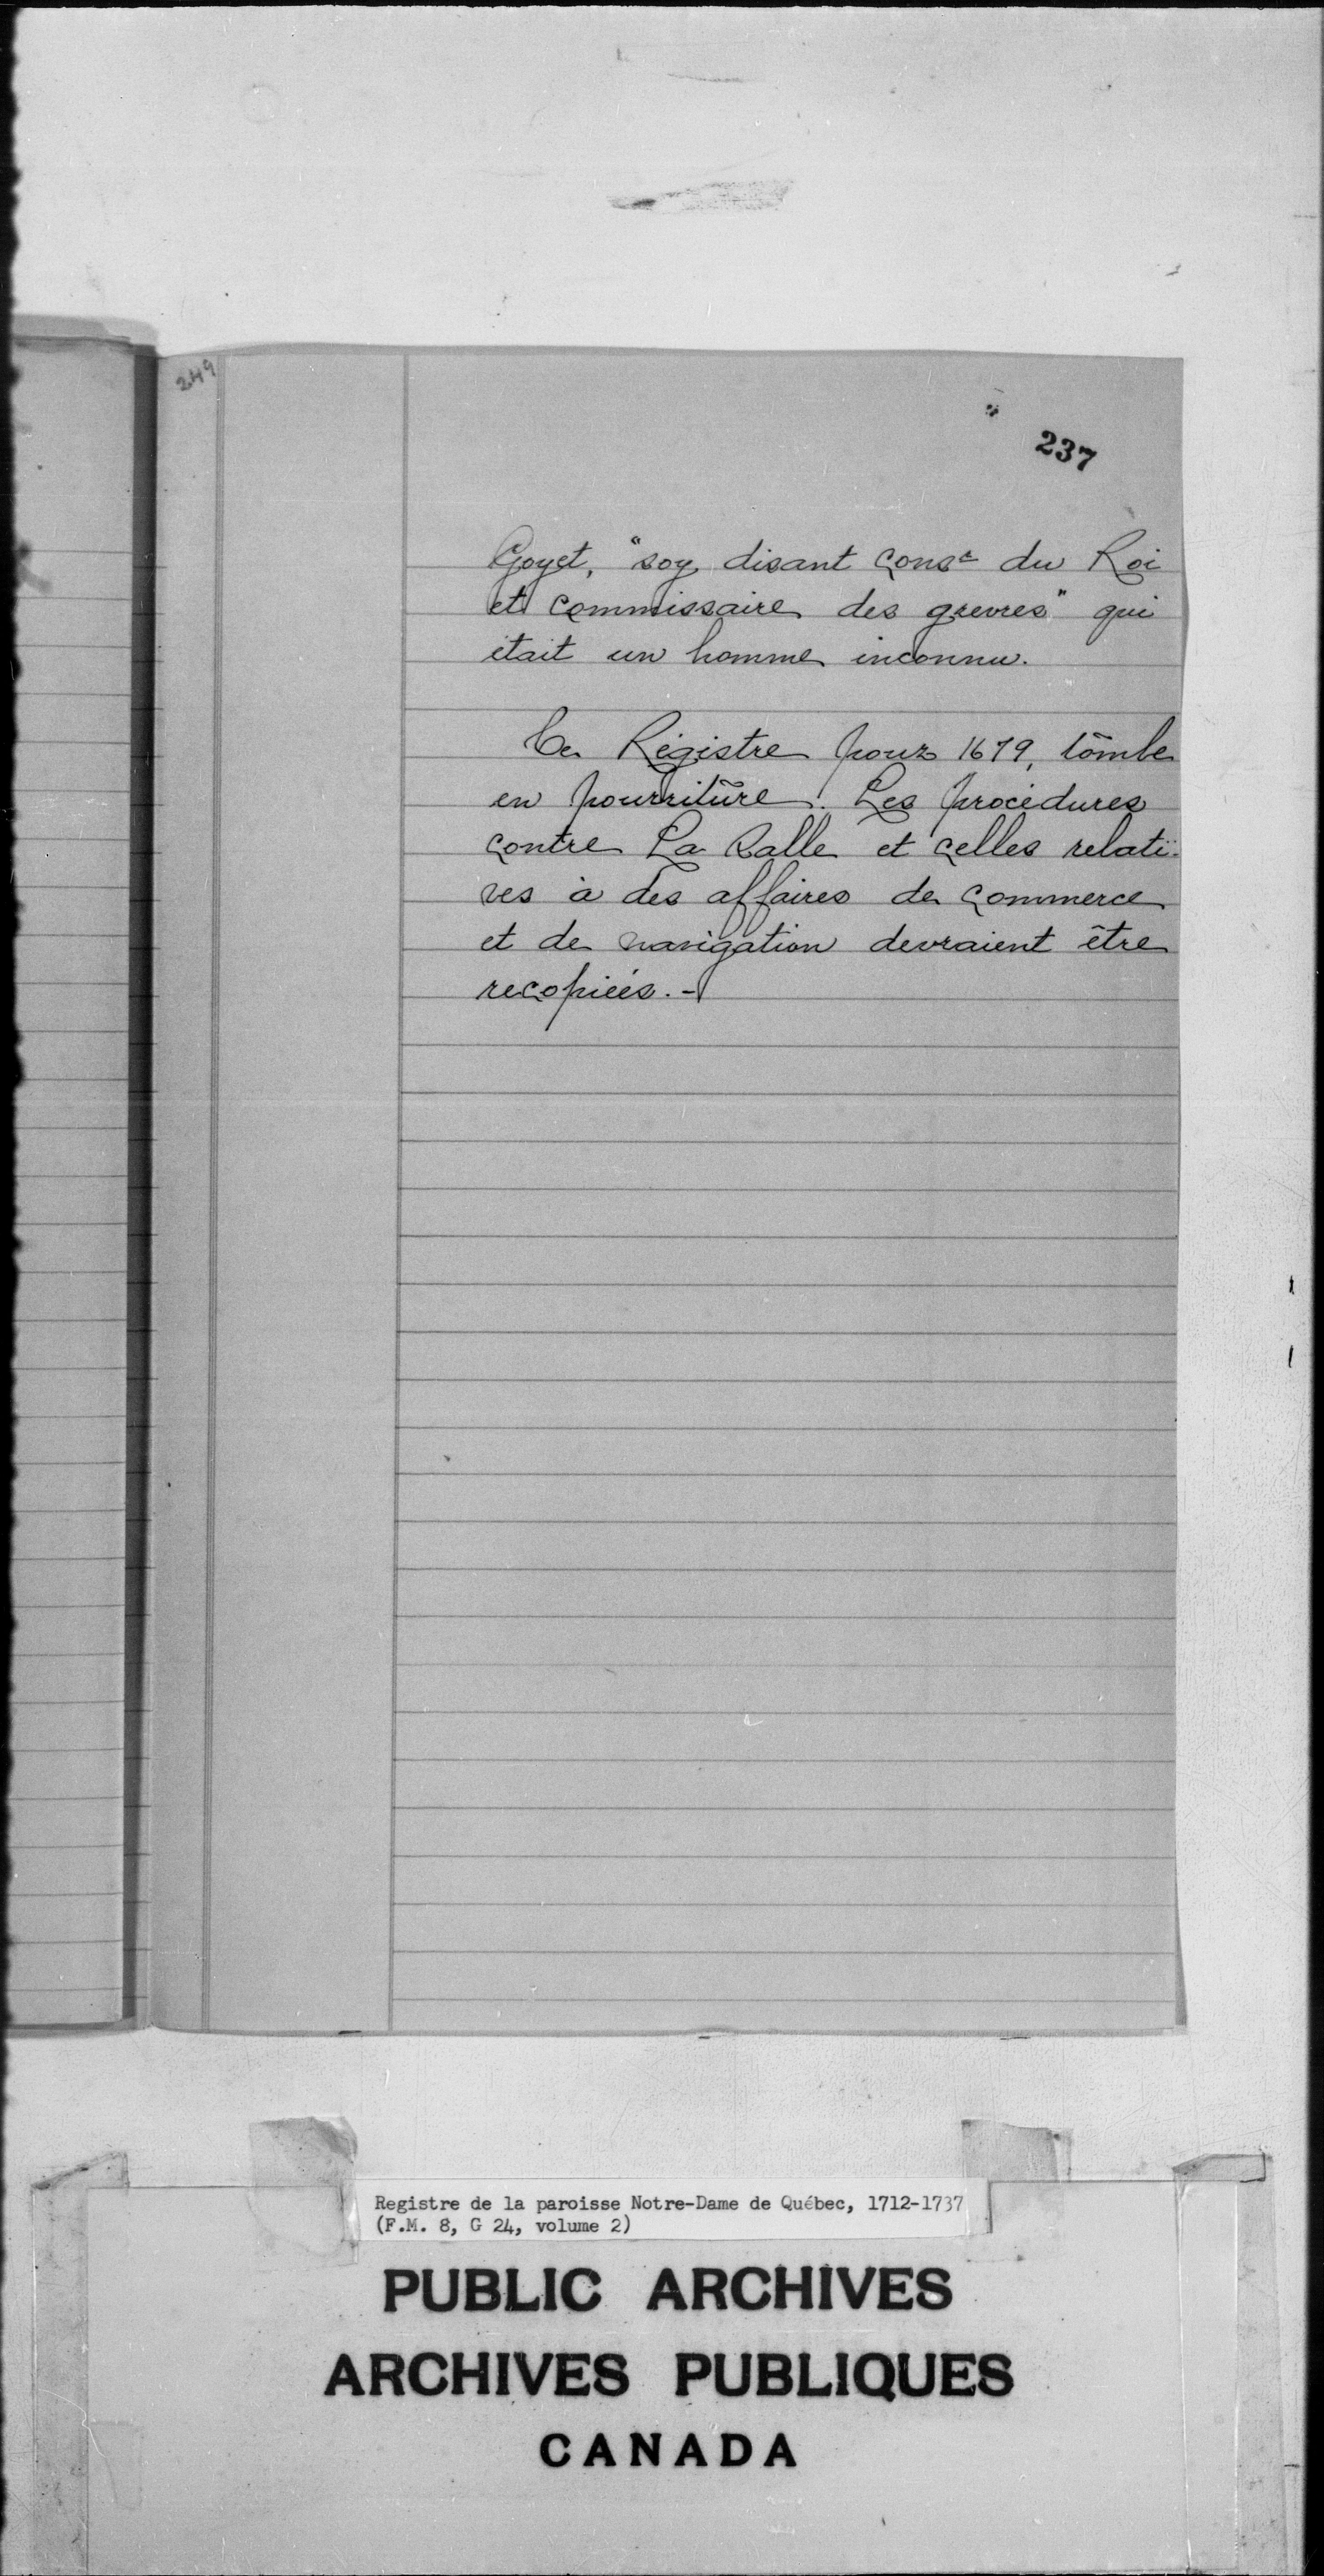 249
237
Goyet, "soy disant consr du Roi
et commissaire des grevres" qui
était un homme inconnu.
Ce Régistre pour 1679, tombe
en pourriture. Les procédures
contre La Salle et celles relati-
ves à des affaires de commerce
et de navigation devraient être
recopiées.-
Registre de la paroisse Notre-Dame de Québec, 1712-1737
(F.M. 8, G 24, volume 2)
PUBLIC ARCHIVES
ARCHIVES PUBLIQUES
CANADA